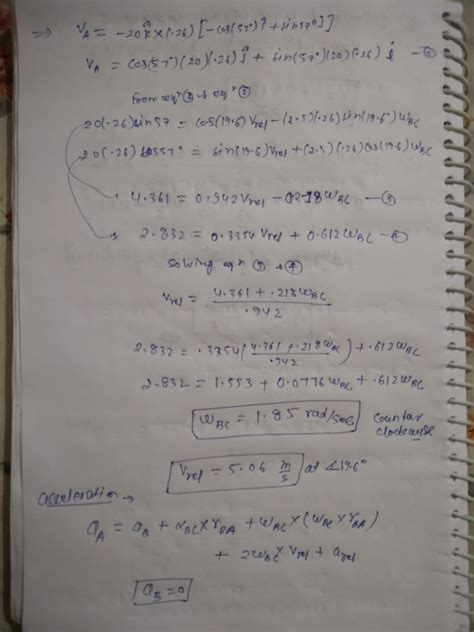 ⇒ V_A = -20k̂ × (.26) [-cos(57°)î + sin57°ĵ]
V_A = cos(57°)(20)(.26)ĵ + sin(57°)(20)(.26) î —②
from eqⁿ ① & eqⁿ ②
20(.26)sin57 = cos(19.6)Vrel - (2.5)(.26)sin(19.6°)ω_BC
20(.26)cos57° = sin(19.6)Vrel + (2.5)(.26)cos(19.6)ω_BC
4.361 = 0.942Vrel - 0.218ω_BC —③
2.832 = 0.3354Vrel + 0.612ω_BC —④
Solving eqⁿ ③ & ④
Vrel = (4.361 + .218ω_BC)/.942
2.832 = .3354((4.361 + .218ω_BC)/.942) + .612ω_BC
2.832 = 1.553 + 0.0776ω_BC + .612ω_BC
ω_BC = 1.85 rad/sec counter clockwise
Vrel = 5.06 m/s at ∠19.6°
acceleration →
a_A = a_B + α_BC × r_BA + ω_BC × (ω_BC × r_BA)
+ 2ω_BC × Vrel + arel
a_B = 0